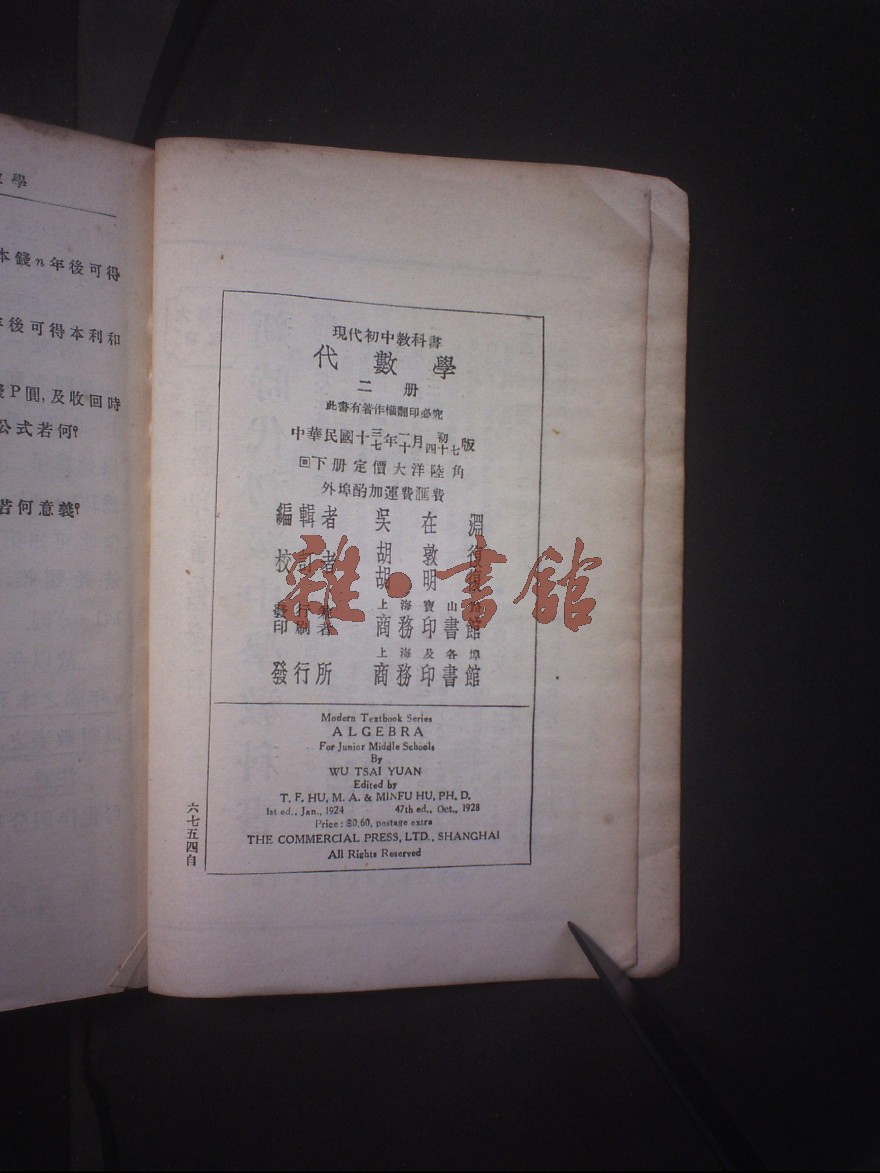 學
本錢n年後可得
年後可得本利和
P圓,及收回時
公式若何?
若何意義?
現代初中教科書
代數學
二册
此書有著作權翻印必究
中華民國十三七年一十月初四十七版
下册定價大洋陸角
外埠酌加運費滙費
編輯者 吳在淵
校訂者 胡敦復 胡明復
發行兼印刷者 上海寶山路 商務印書館
發行所 上海及各埠 商務印書館
Modern Textbook Series
ALGEBRA
For Junior Middle Schools
By
WU TSAI YUAN
Edited by
T. F. HU, M. A. & MINFU HU, PH. D.
1st ed., Jan., 1924 47th ed., Oct., 1928
Price: $0.60, postage extra
THE COMMERCIAL PRESS, LTD., SHANGHAI
All Rights Reserved
六七五四自
雜·書館